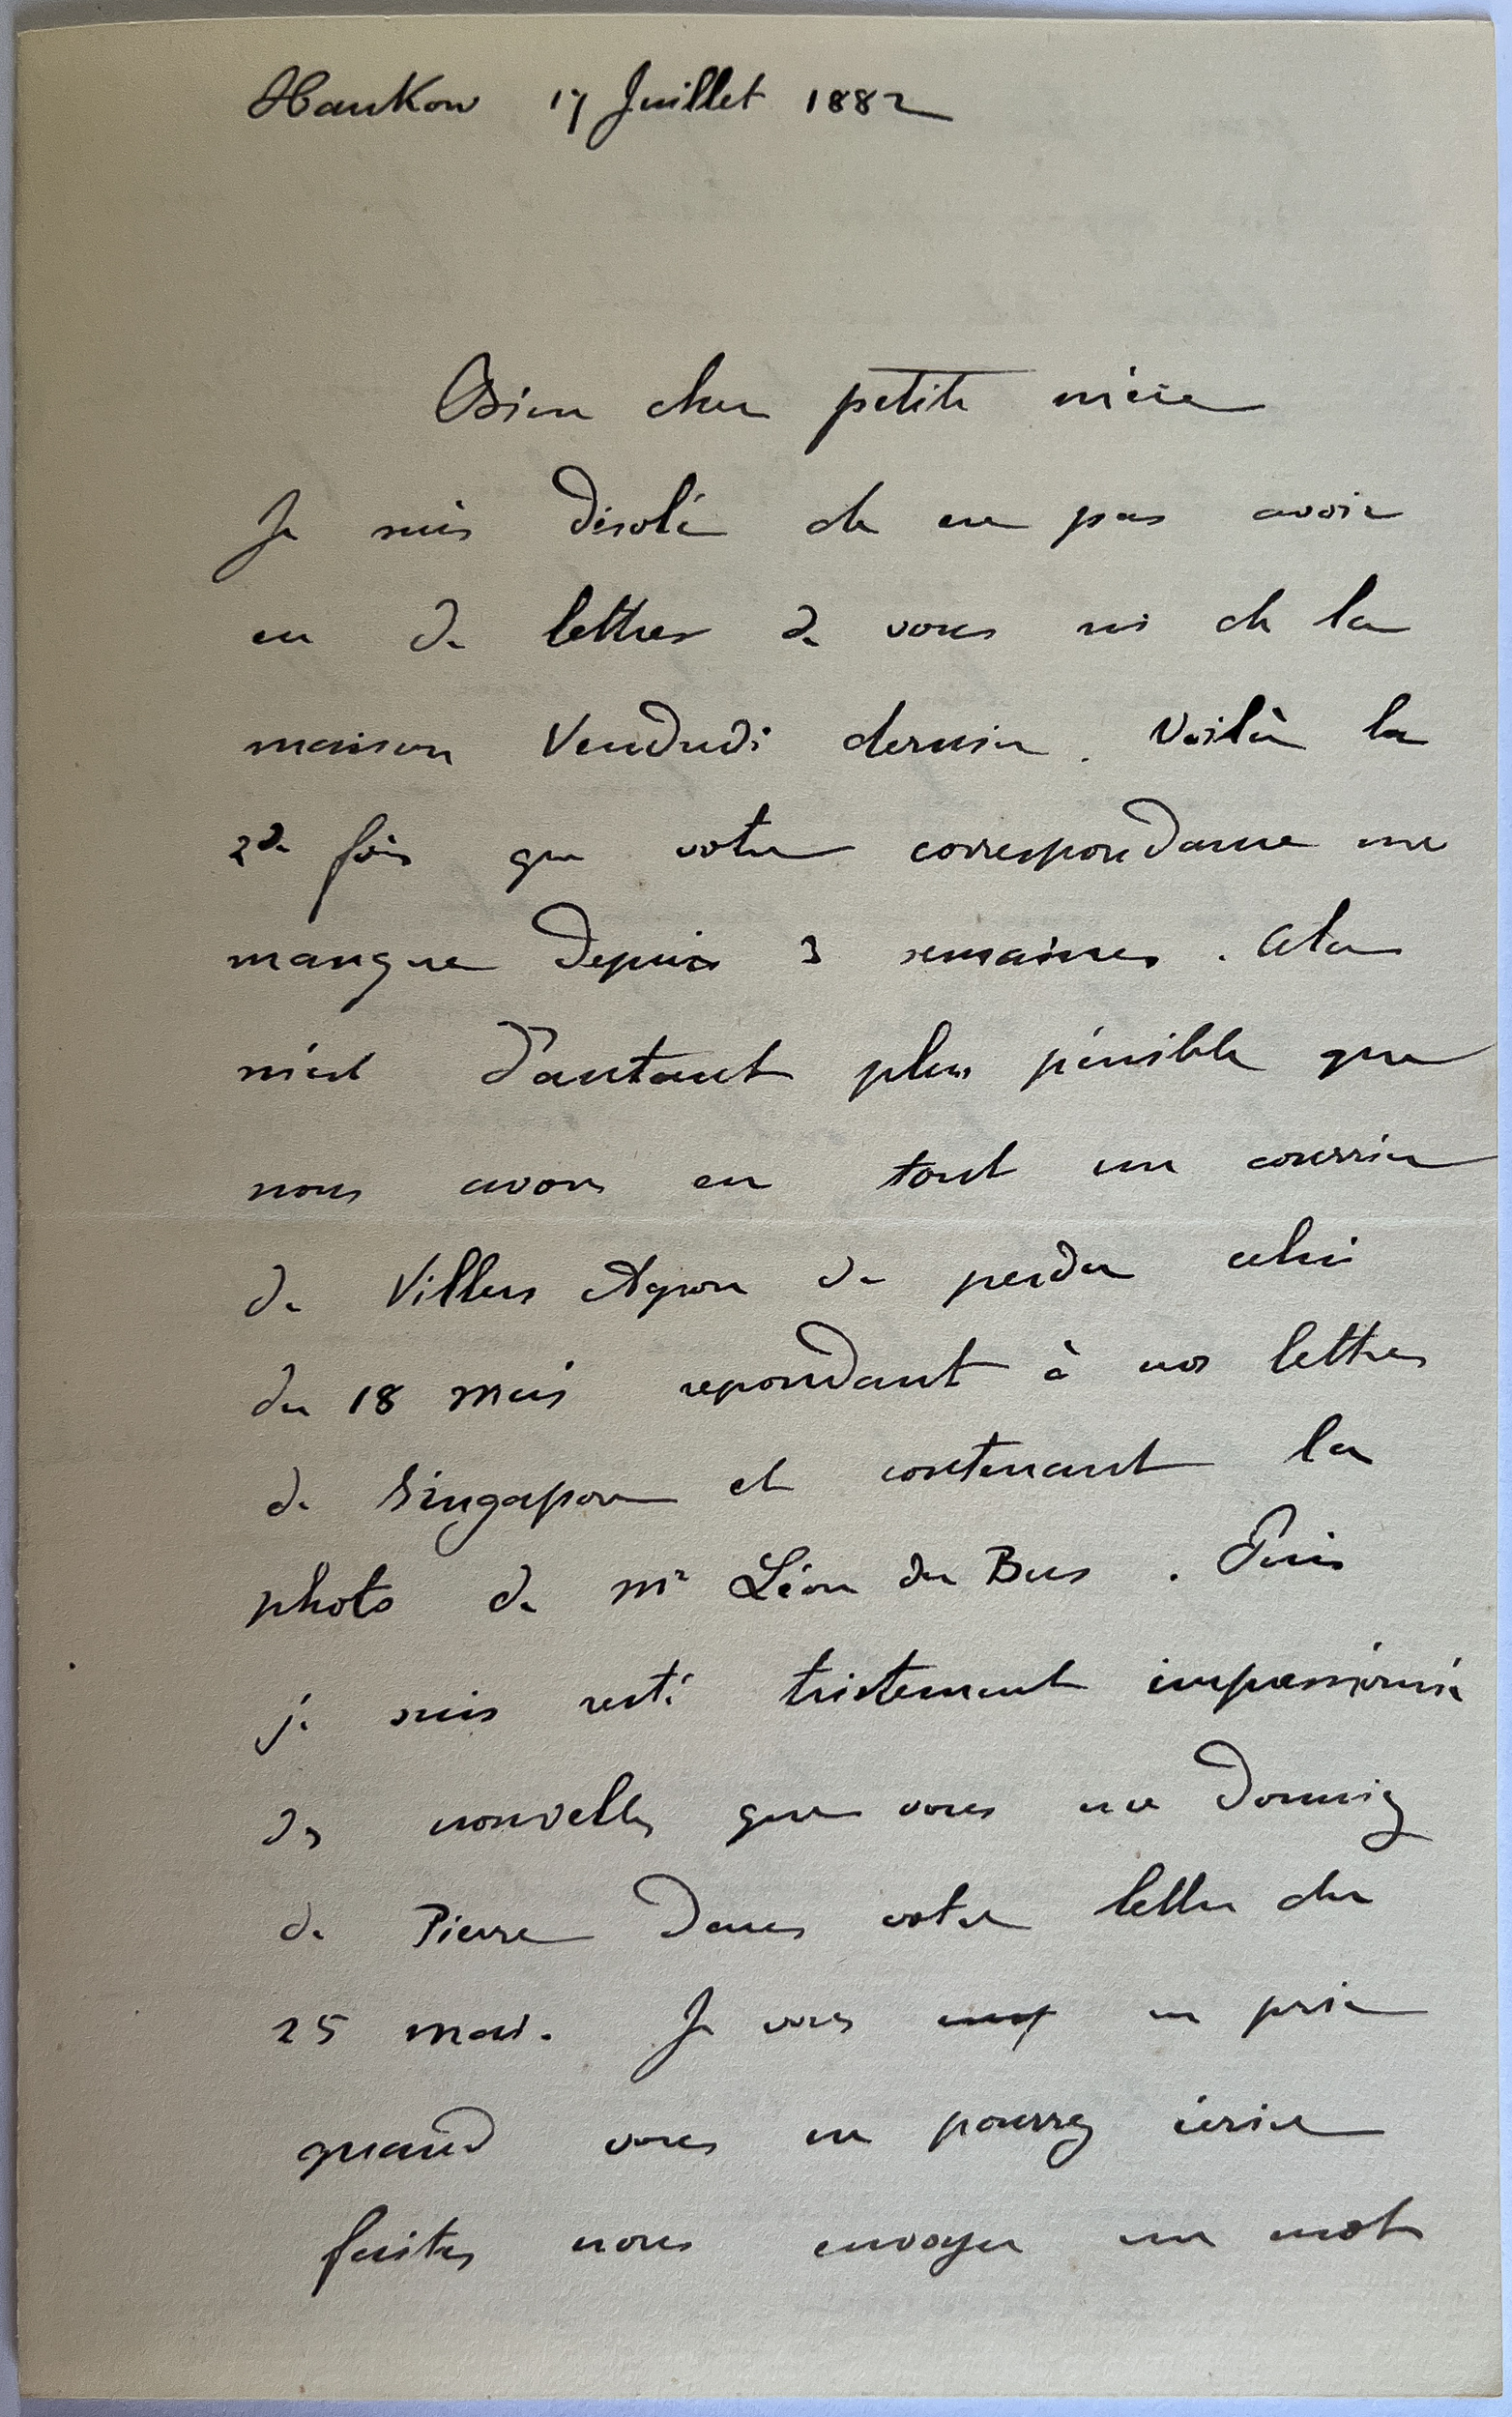 Hankow 17 Juillet 1882
Bien chere petite mère
Je suis désolé de ne pas avoir
eu de lettres de vous ni de la
maison Vendredi dernier. Voilà la
2de fois que votre correspondance me
manque depuis 3 semaines. Cela
m'est d'autant plus pénible que
nous avons eu tout un courrier
de Villers Agron de perdu celui
du 18 mai repondant à nos lettres
de Singapour et contenant la
photo de Mr Léon du Bus. Puis
je suis resté tristement impressionné
des nouvelles que vous me donniez
de Pierre dans votre lettre du
25 mai. Je vous en prie
quand vous ne pourrez écrire
faites nous envoyer un mot